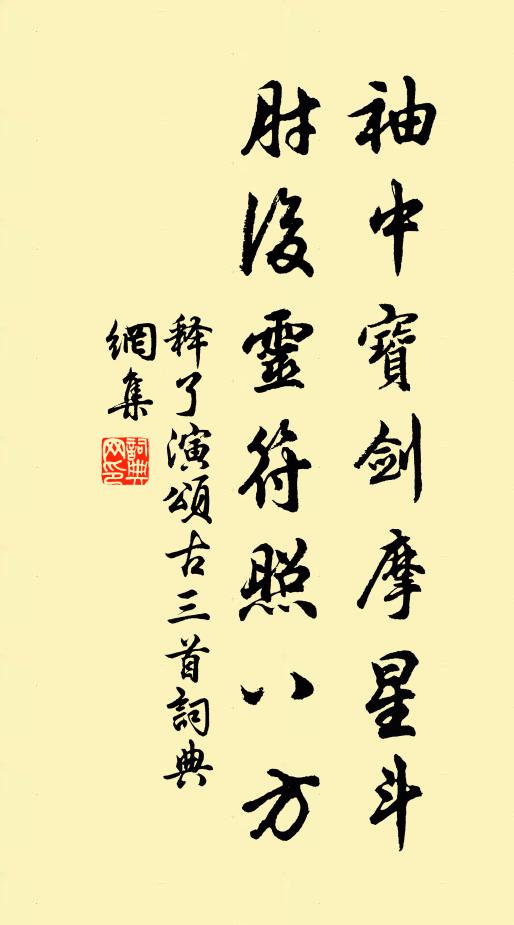 袖中寶劍摩星斗
肘後靈符照八方
释了演頌古三首詞典
網集
詞典網印